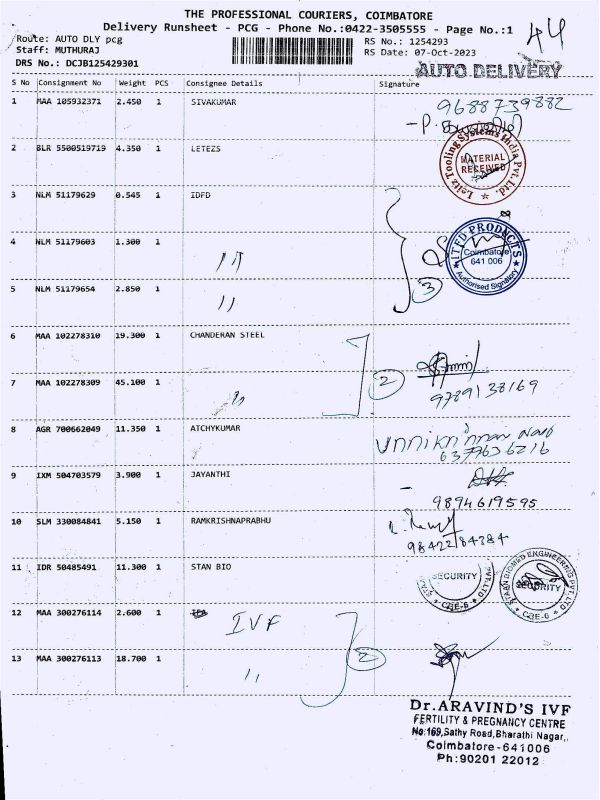 THE PROFESSIONAL COURIERS, COIMBATORE
Delivery Runsheet - PCG - Phone No.:0422-3505555 - Page No.:1
44
Route: AUTO DLY pcg
RS No.: 1254293
Staff: MUTHURAJ
RS Date: 07-Oct-2023
DRS No.: DCJB125429301
AUTO DELIVERY
S No Consignment No Weight PCS Consignee Details Signature
1 MAA 105932371 2.450 1 SIVAKUMAR 9688739882
2 BLR 5500519719 4.350 1 LETEZS
Leitz Tooling Systems India Pvt. Ltd.
MATERIAL
RECEIVED
3 NLM 51179629 0.545 1 IDFD
ITFD PRODUCTS
Coimbatore
641 006
Authorised Signatory
4 NLM 51179603 1.300 1 ''
5 NLM 51179654 2.850 1 '' 3
6 MAA 102278310 19.300 1 CHANDERAN STEEL
7 MAA 102278309 45.100 1 '' 2 9789138169
8 AGR 700662049 11.350 1 ATCHYKUMAR
6377636216
9 IXM 504703579 3.900 1 JAYANTHI
9894619595
10 SLM 330084841 5.150 1 RAMKRISHNAPRABHU
98422/84384
11 IDR 50485491 11.300 1 STAN BIO
SECURITY
PVT.LTD
CBE-6
STAAN BIOMED ENGINEERING PVT.LTD
SECURITY
CBE-6
12 MAA 300276114 2.600 1 IVF
13 MAA 300276113 18.700 1 '' 2
Dr.ARAVIND'S IVF
FERTILITY & PREGNANCY CENTRE
No:169,Sathy Road,Bharathi Nagar,
Coimbatore-641006
Ph:90201 22012